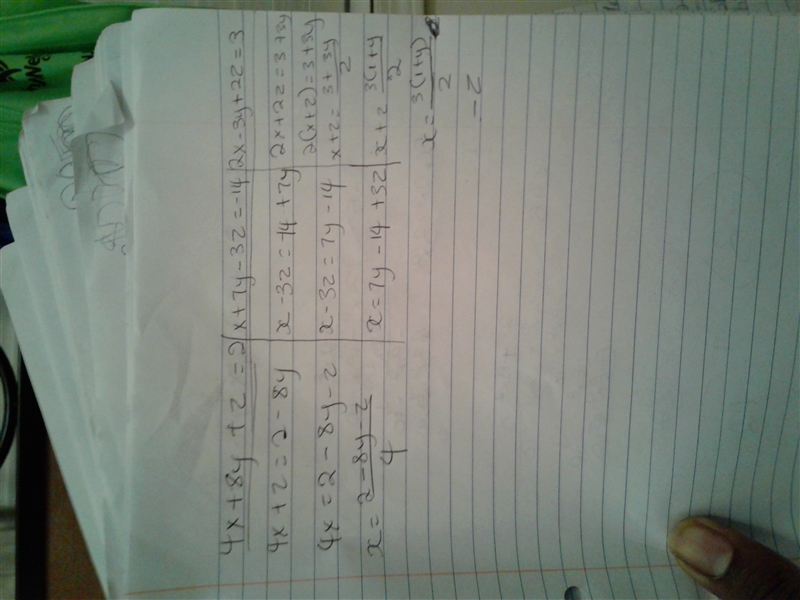 4x + 8y + z = 2 | x + 7y - 3z = -14 | 2x - 3y + 2z = 3
4x + z = 2 - 8y | x - 3z = -14 + 7y | 2x + 2z = 3 + 3y
2(x + z) = 3 + 3y
4x = 2 - 8y - z | x - 3z = 7y - 14 | x + z = 3 + 3y / 2
x = 2 - 8y - z / 4 | x = 7y - 14 + 3z | x + z 3(1+y / 2
x = 3(1+y) / 2
- z